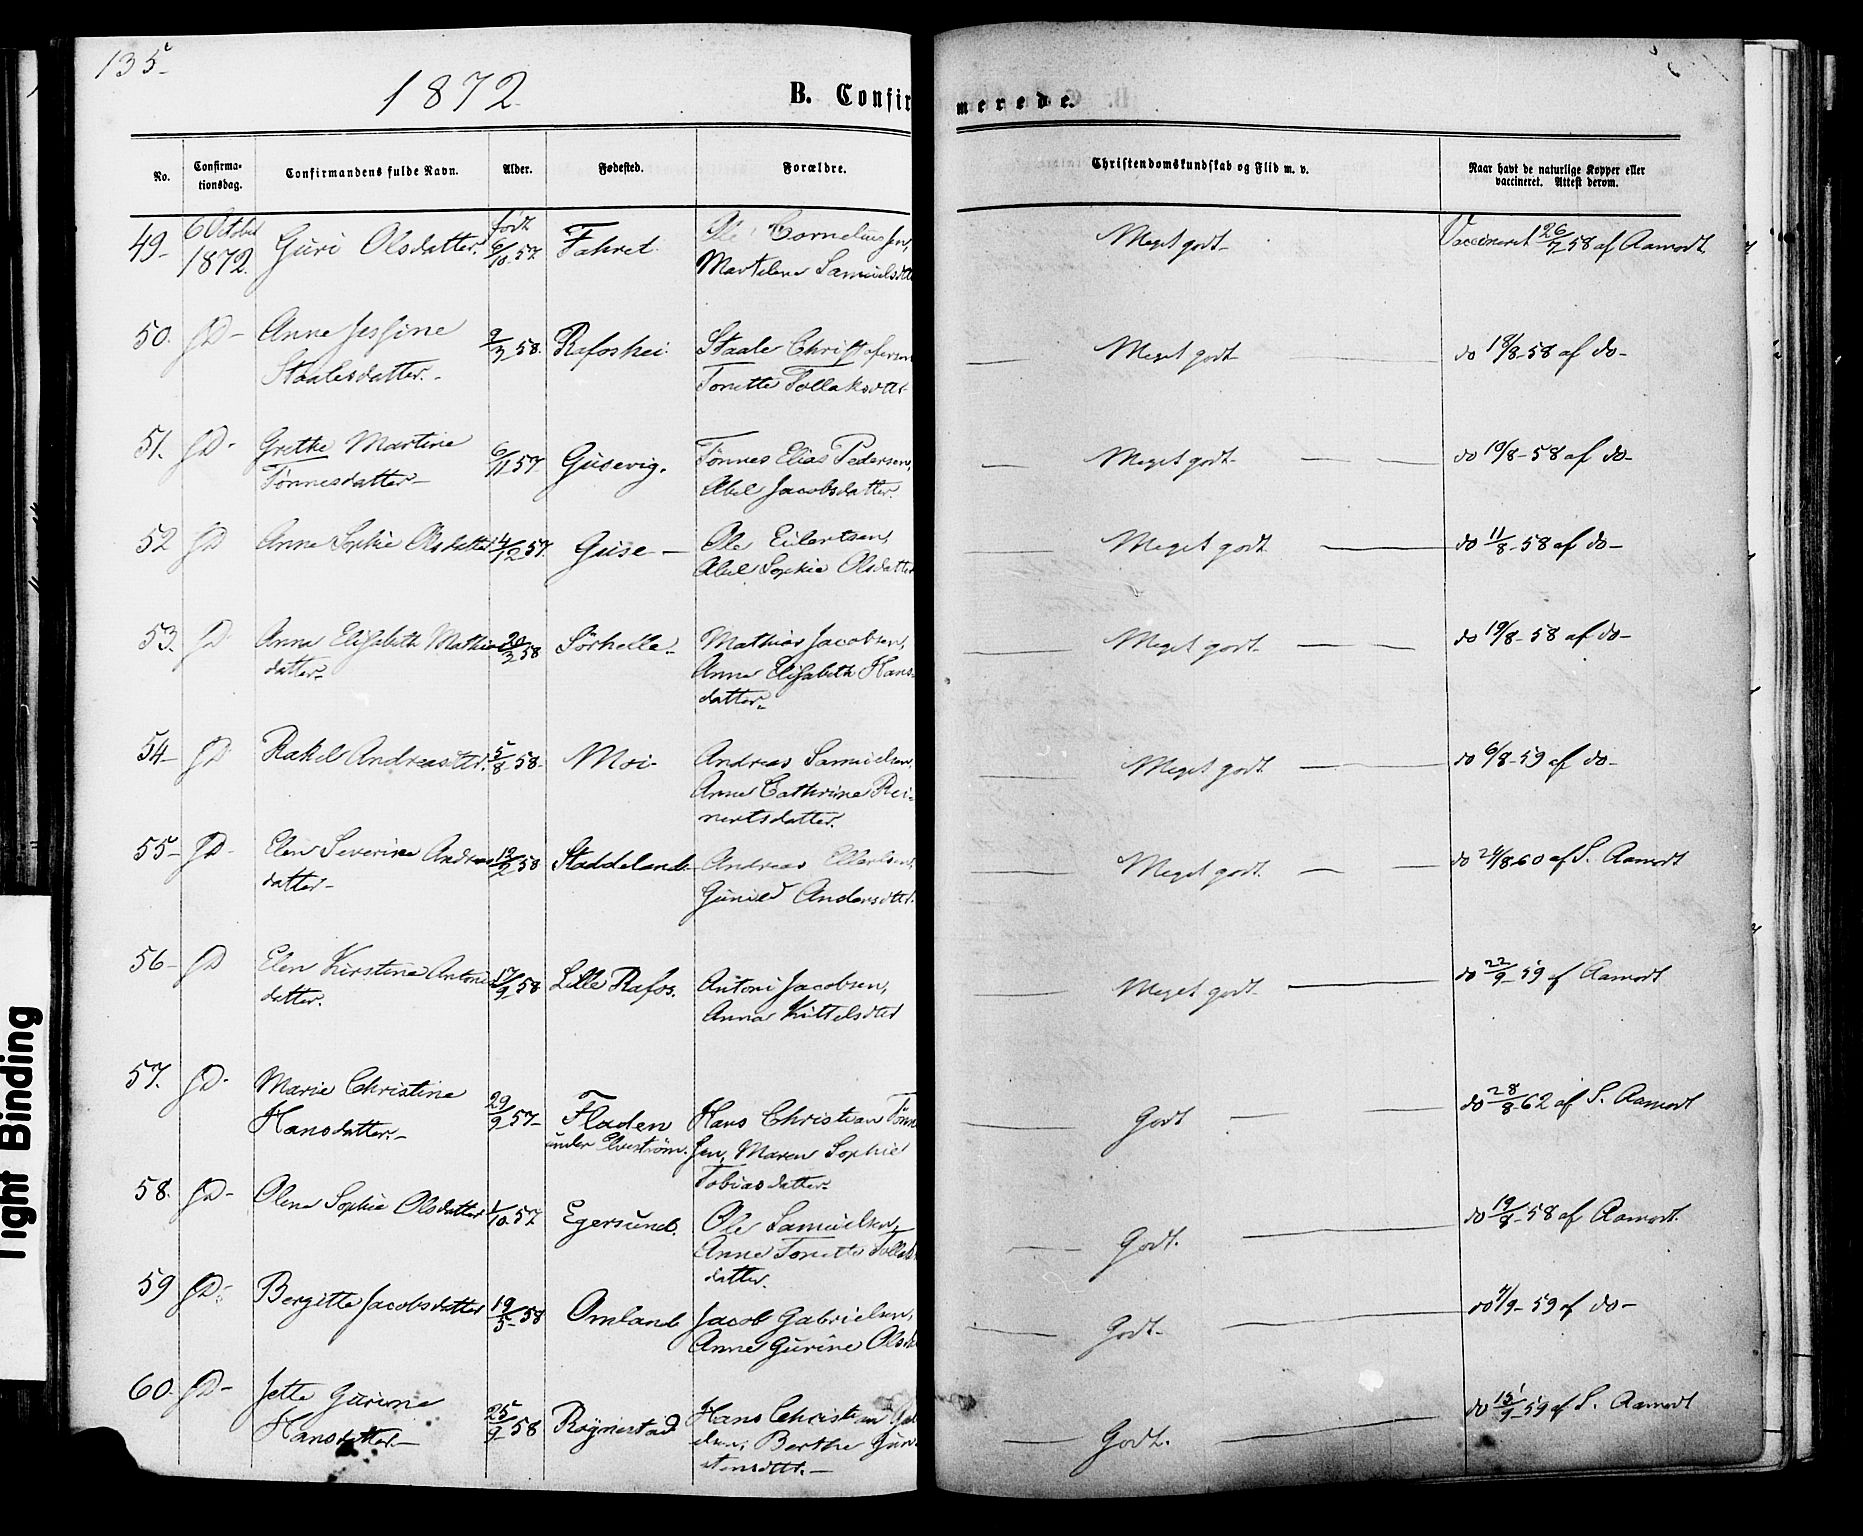 135
1872
B. Confirmerede.
No.
Confirmationsdag.
Confirmandens fulde Navn.
Alder.
Fødested.
Forældre.
Christendomskundskab og Flid m. v.
Naar havt de naturlige Kopper eller vaccineret. Attest derom.
49- 6 Octbr 1872. Guri Olsdatter. født 6/10 57. Fahret. Ole Corneliussen,
Marteline Samuelsdtr
Meget godt- Vaccineret 26/7 58 af Aamodt
50. D- Anne Jessine
Staalesdatter.- 9/3 58. Refoshei. Staale Christofersen
Tonette Tollaksdtr
Meget godt do 18/8-58 af do-
51. D- Grethe Martine
Tønnesdatter- 6/11 57. Gusevig. Tønnes Elias Pedersen,
Abel Jacobsdatter.
Meget godt- do 10/8-58 af do-
52 D Anne Sophie Olsdatter 4/12 57. Guse- Ole Eilertsen,
Abel Sophie Olsdatter
Meget godt do 11/8-58 af do-
53. D Anna Elisabeth Mathias
datter- 20/2 58 Sørhelle- Mathias Jacobsen,
Anne Elisabeth Hans-
datter-
Meget godt- do 19/8-58 af do-
54- D Rakel Andreasdtr. 5/8 58- Moi- Andreas Samuelsen,
Anne Cathrine Rei-
nertsdatter.
Meget godt do 6/8-59 af do-
55- D- Elen Severine Andreas
datter- 12/2 58 Staddeland- Andreas Ellertsen,
Gunild Andersdtr.
Meget godt. do 24/8-60 af S. Aamodt
56- D Elen Kirstine Antoni
datter. 17/9 58 Lille Rafos. Antoni Jacobsen,
Anna Kittelsdtr
Meget godt- do 22/9-59 af Aamodt
57. D- Marie Christine
Hansdatter.- 29/9 57- Fladen
under Elvestrøm. Hans Christian Tønne
sen, Maren Sophie
Tobiasdatter-
Godt do 28/8-62 af S. Aamodt
58. D- Olene Sophie Olsdatter 1/10 57 Egersund. Ole Samuelsen,
Anne Tonette Tollaks
datter.
Godt. do 19/8-58 af Aamodt.
59 D- Bergitte Jacobsdatter 19/5 58 Omland Jacob Gabrielsen,
Anne Gurine Olsd
Godt- do 4/9-59 af do-
60. D- Jette Gurine
Hansdatter- 25/9 58 Røgnestad Hans Christian
Berthe
Godt. do 15/9-59 af S. Aamodt
Tight Binding